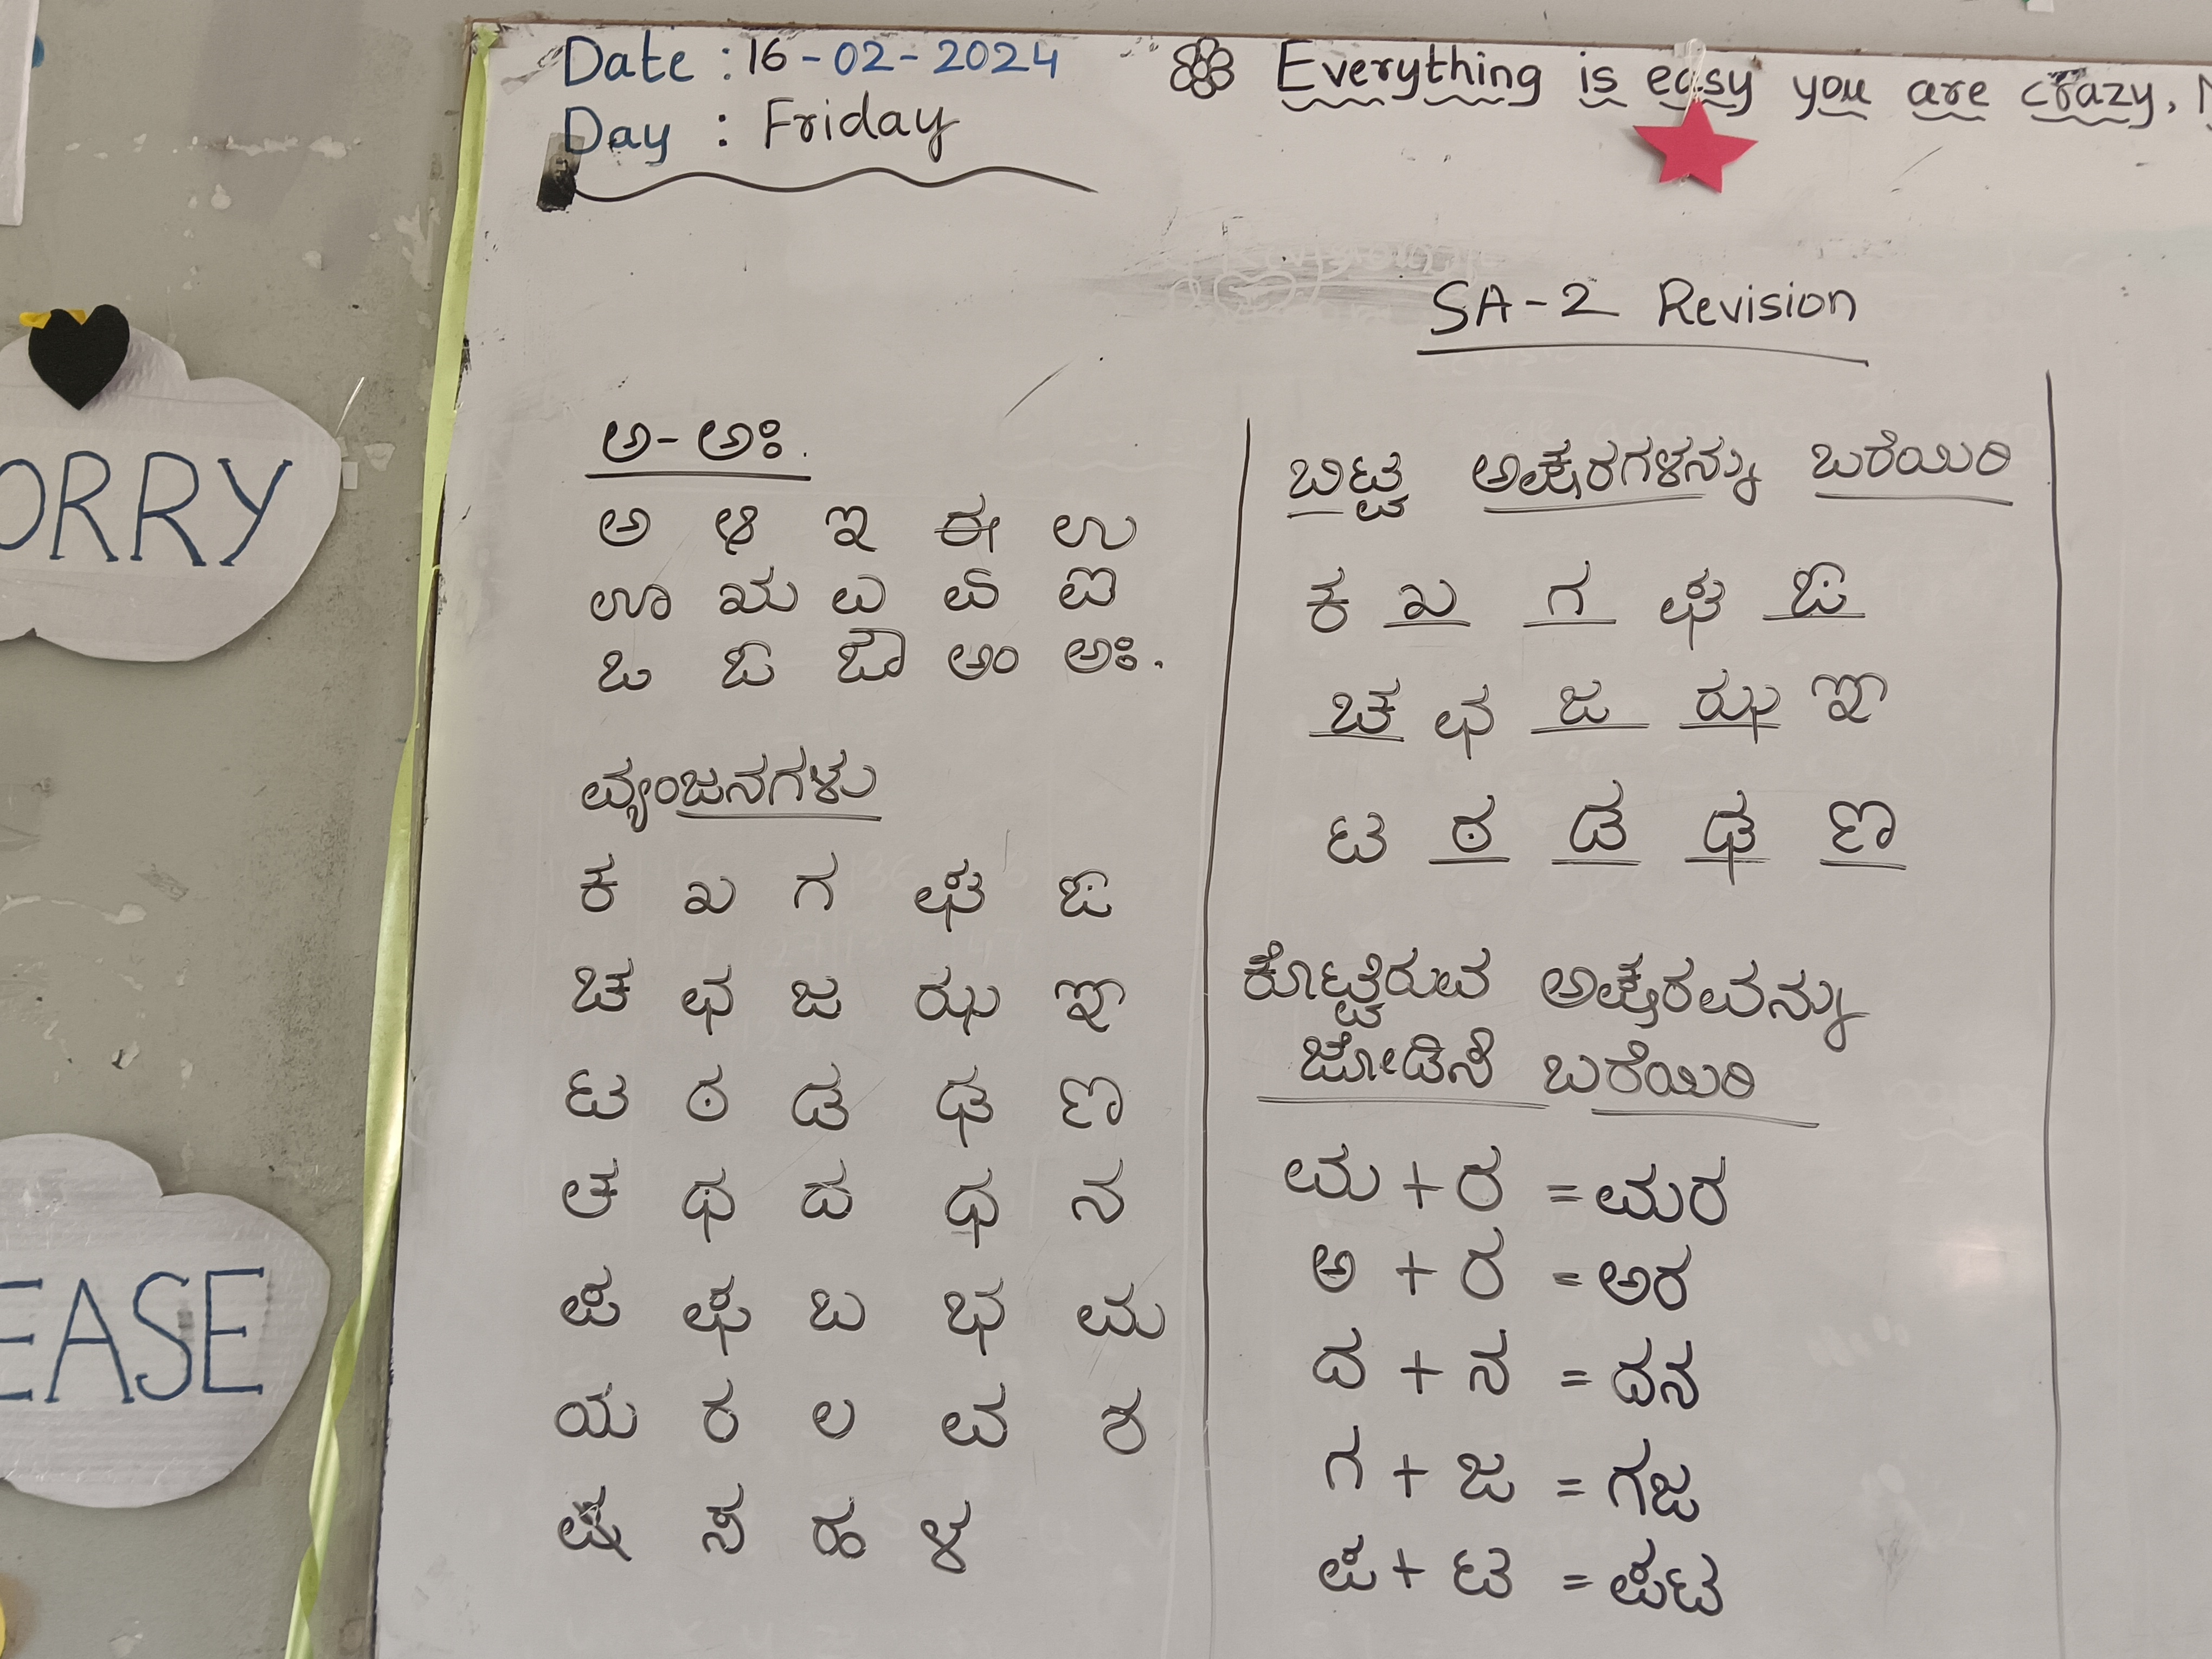 Date : 16-02-2024
Day : Friday
Everything is easy you are crazy.
SA-2 Revision
ಅ - ಅಃ.
ಅ ಆ ಇ ಈ ಉ
ಊ ಋ ಎ ಏ ಐ
ಒ ಓ ಔ ಅಂ ಅಃ.
ವ್ಯಂಜನಗಳು
ಕ ಖ ಗ ಘ ಙ
ಚ ಛ ಜ ಝ ಞ
ಟ ಠ ಡ ಢ ಣ
ತ ಥ ದ ಧ ನ
ಪ ಫ ಬ ಭ ಮ
ಯ ರ ಲ ವ ಶ
ಷ ಸ ಹ ಳ
ಬಿಟ್ಟ ಅಕ್ಷರಗಳನ್ನು ಬರೆಯಿರಿ
ಕ ಖ ಗ ಘ ಙ
ಚ ಛ ಜ ಝ ಞ
ಟ ಠ ಡ ಢ ಣ
ಕೊಟ್ಟಿರುವ ಅಕ್ಷರವನ್ನು
ಜೋಡಿಸಿ ಬರೆಯಿರಿ
ಮ + ರ = ಮರ
ಅ + ರ = ಅರ
ದ + ನ = ದನ
ಗ + ಜ = ಗಜ
ಪ + ಟ = ಪಟ
ORRY
EASE